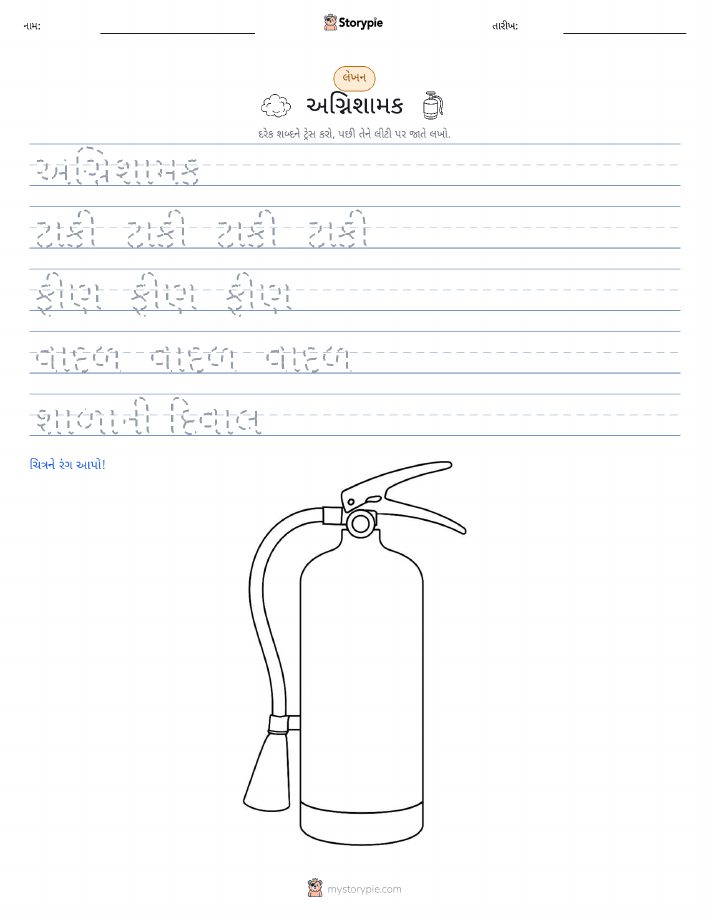 નામ:
Storypie
તારીખ:
લેખન
અગ્નિશામક
દરેક શબ્દને ટ્રેસ કરો, પછી તેને લીટી પર જાતે લખો.
અગ્નિશામક
ટાકી ટાકી ટાકી ટાકી
ફીણ ફીણ ફીણ
વાદળ વાદળ વાદળ
શાળાની દિવાલ
ચિત્રને રંગ આપો!
mystorypie.com